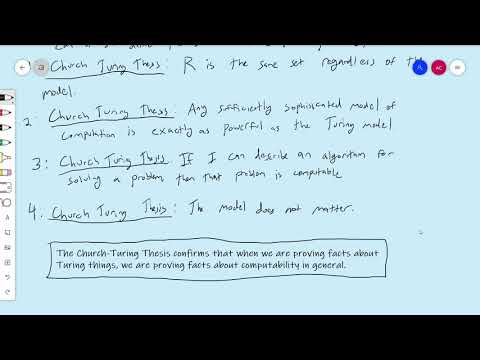 Church Turing Thesis: R is the same set regardless of the
model.
2: Church Turing Thesis: Any sufficiently sophisticated model of
computation is exactly as powerful as the Turing model
3: Church Turing Thesis: If I can describe an algorithm for
solving a problem, then that problem is computable
4. Church Turing Thesis: The model does not matter.
The Church-Turing Thesis confirms that when we are proving facts about
Turing things, we are proving facts about computability in general.